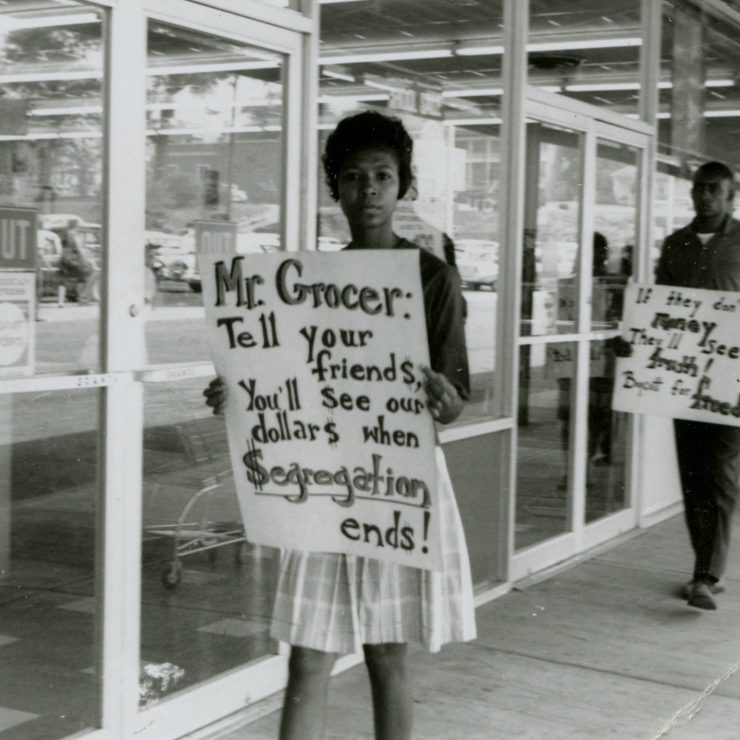 Mr. Grocer:
Tell your
friend$,
You'll $ee our
dollar$ when
$egregation
ends!
If they don't
money see
They'll
truth!
for freed
OUT
OUT